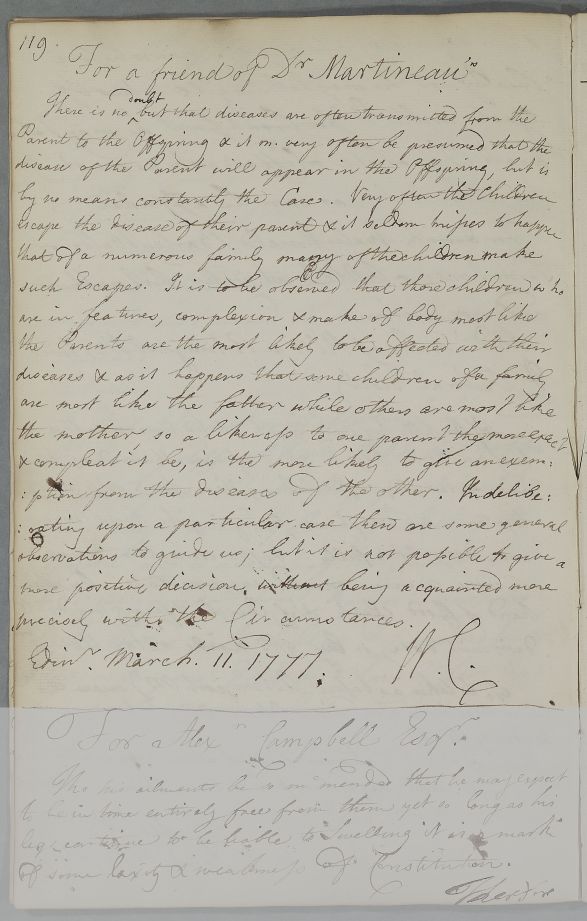 119.
For a friend of Dr Martineau's
There is no doubt but that diseases are often transmitted from the
Parent to the Offspring & it m. very often be presumed that the
disease of the Parent will appear in the Offspring, but is
by no means constantly the Case. Very often the Children
escape the disease of their parent & it seldom misses to happen
that of a numerous family many of the children make
such Escapes. It is to be observed that those children who
are in features, complexion & make of body most like
the Parents are the most likely to be affected with their
diseases & as it happens that some children of a family
are most like the father while others are most like
the mother so a likeness to one parent the more exact
& compleat it be, is the more likely to give an exem:
:ption from the diseases of the other. In delibe:
:rating upon a particular case there are some general
observations to guide us; but it is not possible to give a
more positive decision, without being acquainted more
precisely with the Circumstances.
Edinr. March. 11. 1777. W.C.
For Alexr Campbell Esqr.
Tho his ailments be so mended that he may expect
to be in time entirely free from them yet so long as his
legs continue to be liable to Swelling it is a mark
of some laxity & weakness of Constitution.